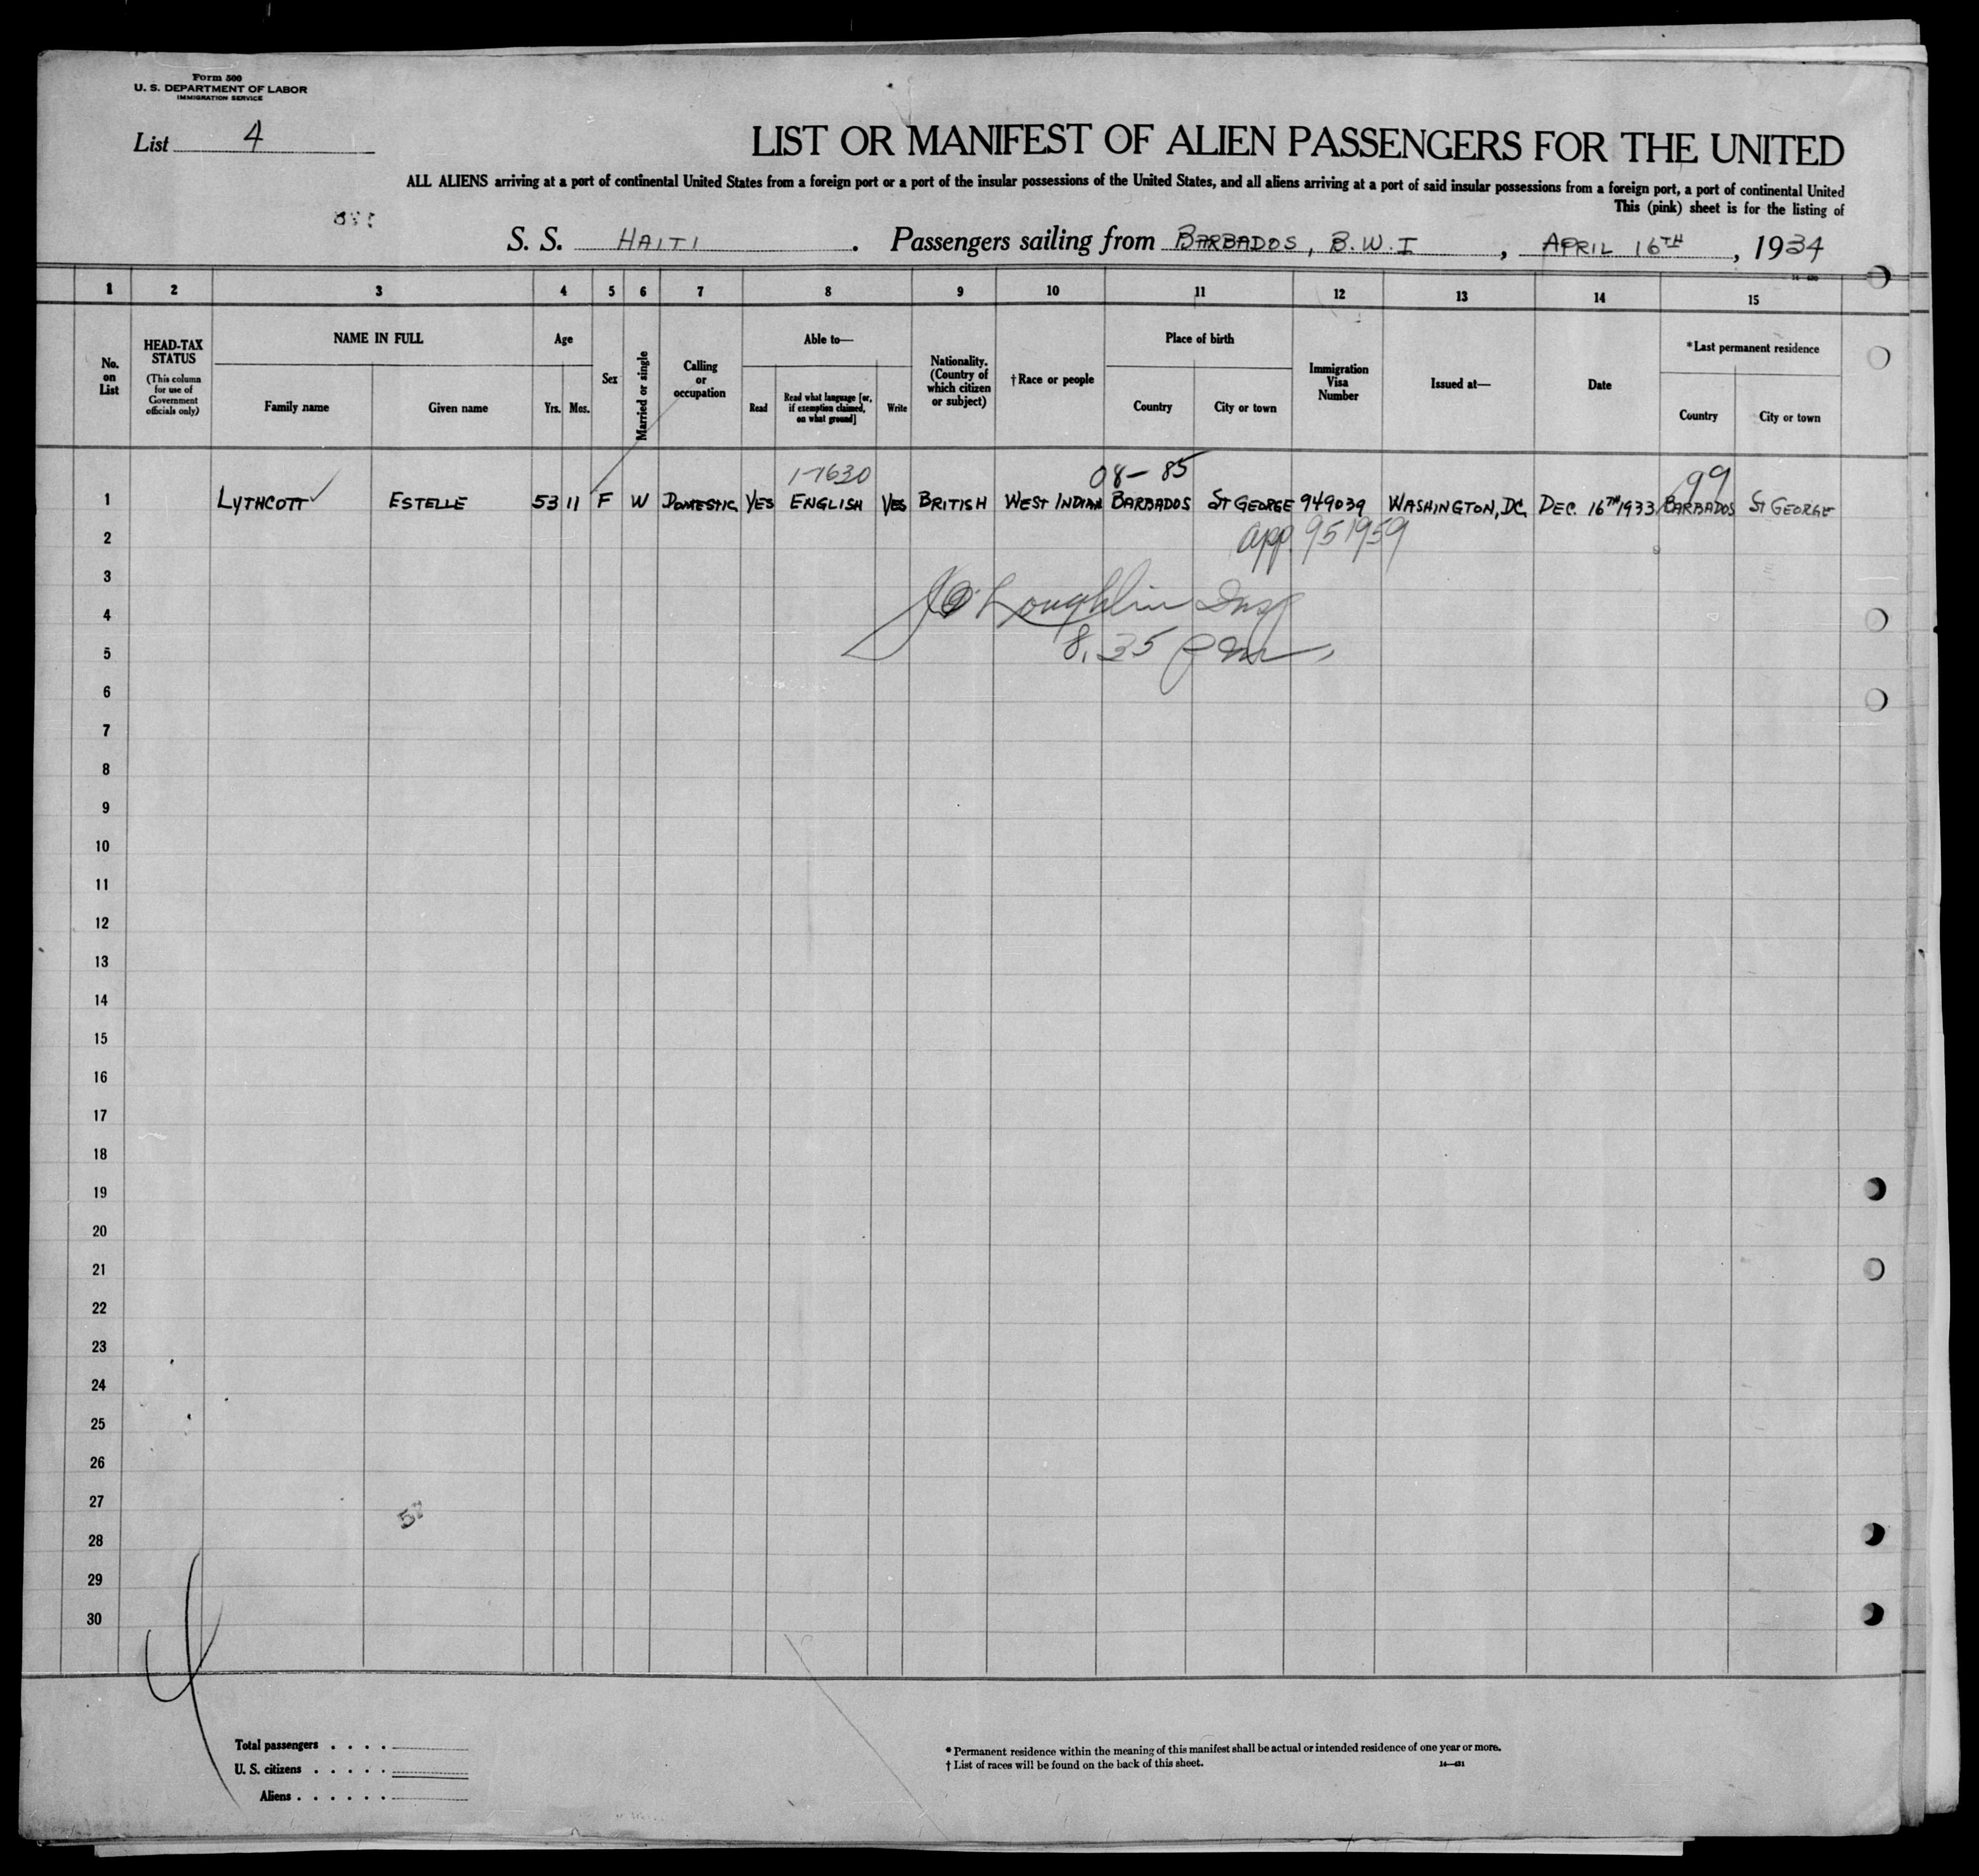 Form 500
U. S. DEPARTMENT OF LABOR
IMMIGRATION SERVICE
List 4
LIST OR MANIFEST OF ALIEN PASSENGERS FOR THE UNITED
ALL ALIENS arriving at a port of continental United States from a foreign port or a port of the insular possessions of the United States, and all aliens arriving at a port of said insular possessions from a foreign port, a port of continental United
This (pink) sheet is for the listing of
S. S. HAITI . Passengers sailing from BARBADOS, B.W.I , APRIL 16TH , 1934
1 2 3 4 5 6 7 8 9 10 11 12 13 14 15
No. on List
HEAD-TAX STATUS
(This column for use of Government officials only)
NAME IN FULL
Family name Given name
Age
Yrs. Mos.
Sex
Married or single
Calling or occupation
Able to—
Read Read what language [or, if exemption claimed, on what ground] Write
Nationality. (Country of which citizen or subject)
†Race or people
Place of birth
Country City or town
Immigration Visa Number
Issued at—
Date
*Last permanent residence
Country City or town
1-7630 08-85 99
1 LYTHCOTT ESTELLE 53 11 F W DOMESTIC YES ENGLISH YES BRITISH WEST INDIAN BARBADOS ST GEORGE 949039 WASHINGTON, DC DEC. 16TH 1933 BARBADOS ST GEORGE
2 app. 951959
3
4 J O'Loughlin Insp
5 8.35 pm
6
7
8
9
10
11
12
13
14
15
16
17
18
19
20
21
22
23
24
25
26
27
28
29
30
4
Total passengers . . . .
U. S. citizens . . . . .
Aliens . . . . . .
* Permanent residence within the meaning of this manifest shall be actual or intended residence of one year or more.
† List of races will be found on the back of this sheet.